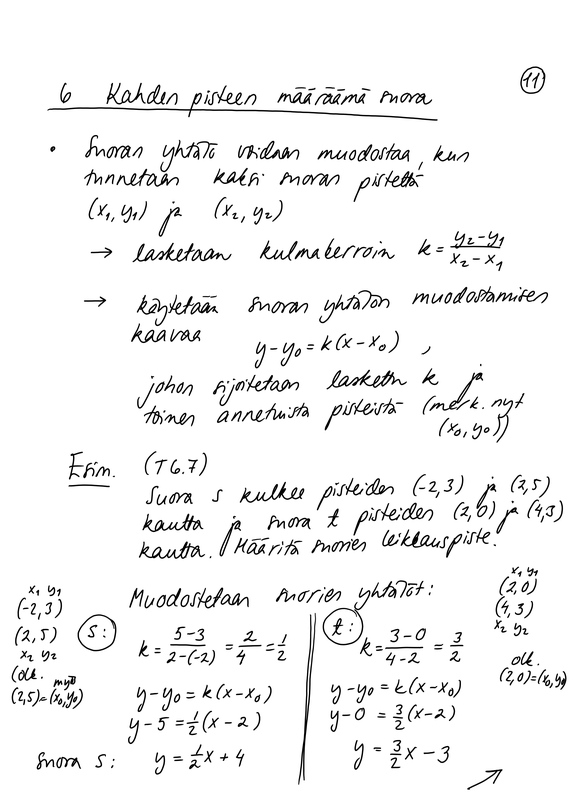 11
6 Kahden pisteen määräämä suora
• Suoran yhtälö voidaan muodostaa, kun
tunnetaan kaksi suoran pistettä
(x₁, y₁) ja (x₂, y₂)
→ lasketaan kulmakerroin k = (y₂-y₁)/(x₂-x₁)
→ käytetään suoran yhtälön muodostamisen
kaavaa
y-y₀ = k(x-x₀) ,
johon sijoitetaan laskettu k ja
toinen annetuista pisteistä (merk. nyt
(x₀, y₀))
Esim. (T6.7)
Suora s kulkee pisteiden (-2,3) ja (2,5)
kautta ja suora t pisteiden (2,0) ja (4,3)
kautta. Määritä suorien leikkauspiste.
Muodostetaan suorien yhtälöt:
x₁ y₁
(-2,3)
(2,5)
x₂ y₂
(olk. myö
(2,5)=(x₀,y₀)
s:
k = (5-3)/(2-(-2)) = 2/4 = 1/2
y-y₀ = k(x-x₀)
y-5 = 1/2(x-2)
suora s: y = 1/2x + 4
t:
k = (3-0)/(4-2) = 3/2
y-y₀ = k(x-x₀)
y-0 = 3/2(x-2)
y = 3/2x - 3
x₁ y₁
(2,0)
(4,3)
x₂ y₂
olk.
(2,0)=(x₀,y₀)
→